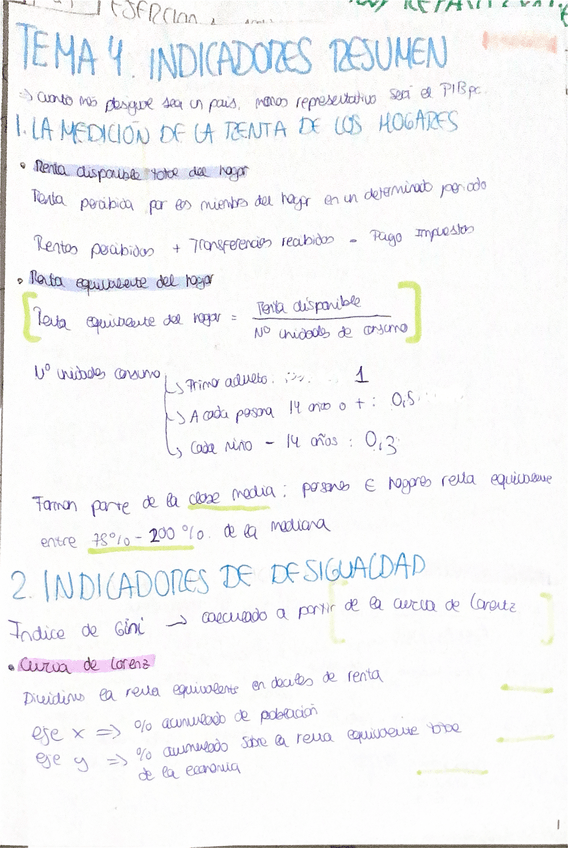 EJERCICI
REPARTI
TEMA 4. INDICADORES RESUMEN
=> cuanto más desigual sea un país, menos representativo será el PIBpc.
1. LA MEDICIÓN DE LA RENTA DE LOS HOGARES
• Renta disponible total del hogar
Renta percibida por los miembros del hogar en un determinado periodo
Rentas percibidas + Transferencias recibidas - Pago Impuestos
• Renta equivalente del hogar
Renta equivalente del hogar = Renta disponible
Nº unidades de consumo
Nº unidades consumo
↳ Primer adulto: 1
↳ A cada persona 14 años o +: 0,5
↳ Cada niño - 14 años: 0,3
Forman parte de la clase media: personas ∈ hogares renta equivalente
entre 75% - 200%. de la mediana
2. INDICADORES DE DESIGUALDAD
Índice de Gini → calculado a partir de la curva de Lorentz
• Curva de Lorenz
Dividimos la renta equivalente en deciles de renta
eje x => % acumulado de población
eje y => % acumulado sobre la renta equivalente total
de la economía
1